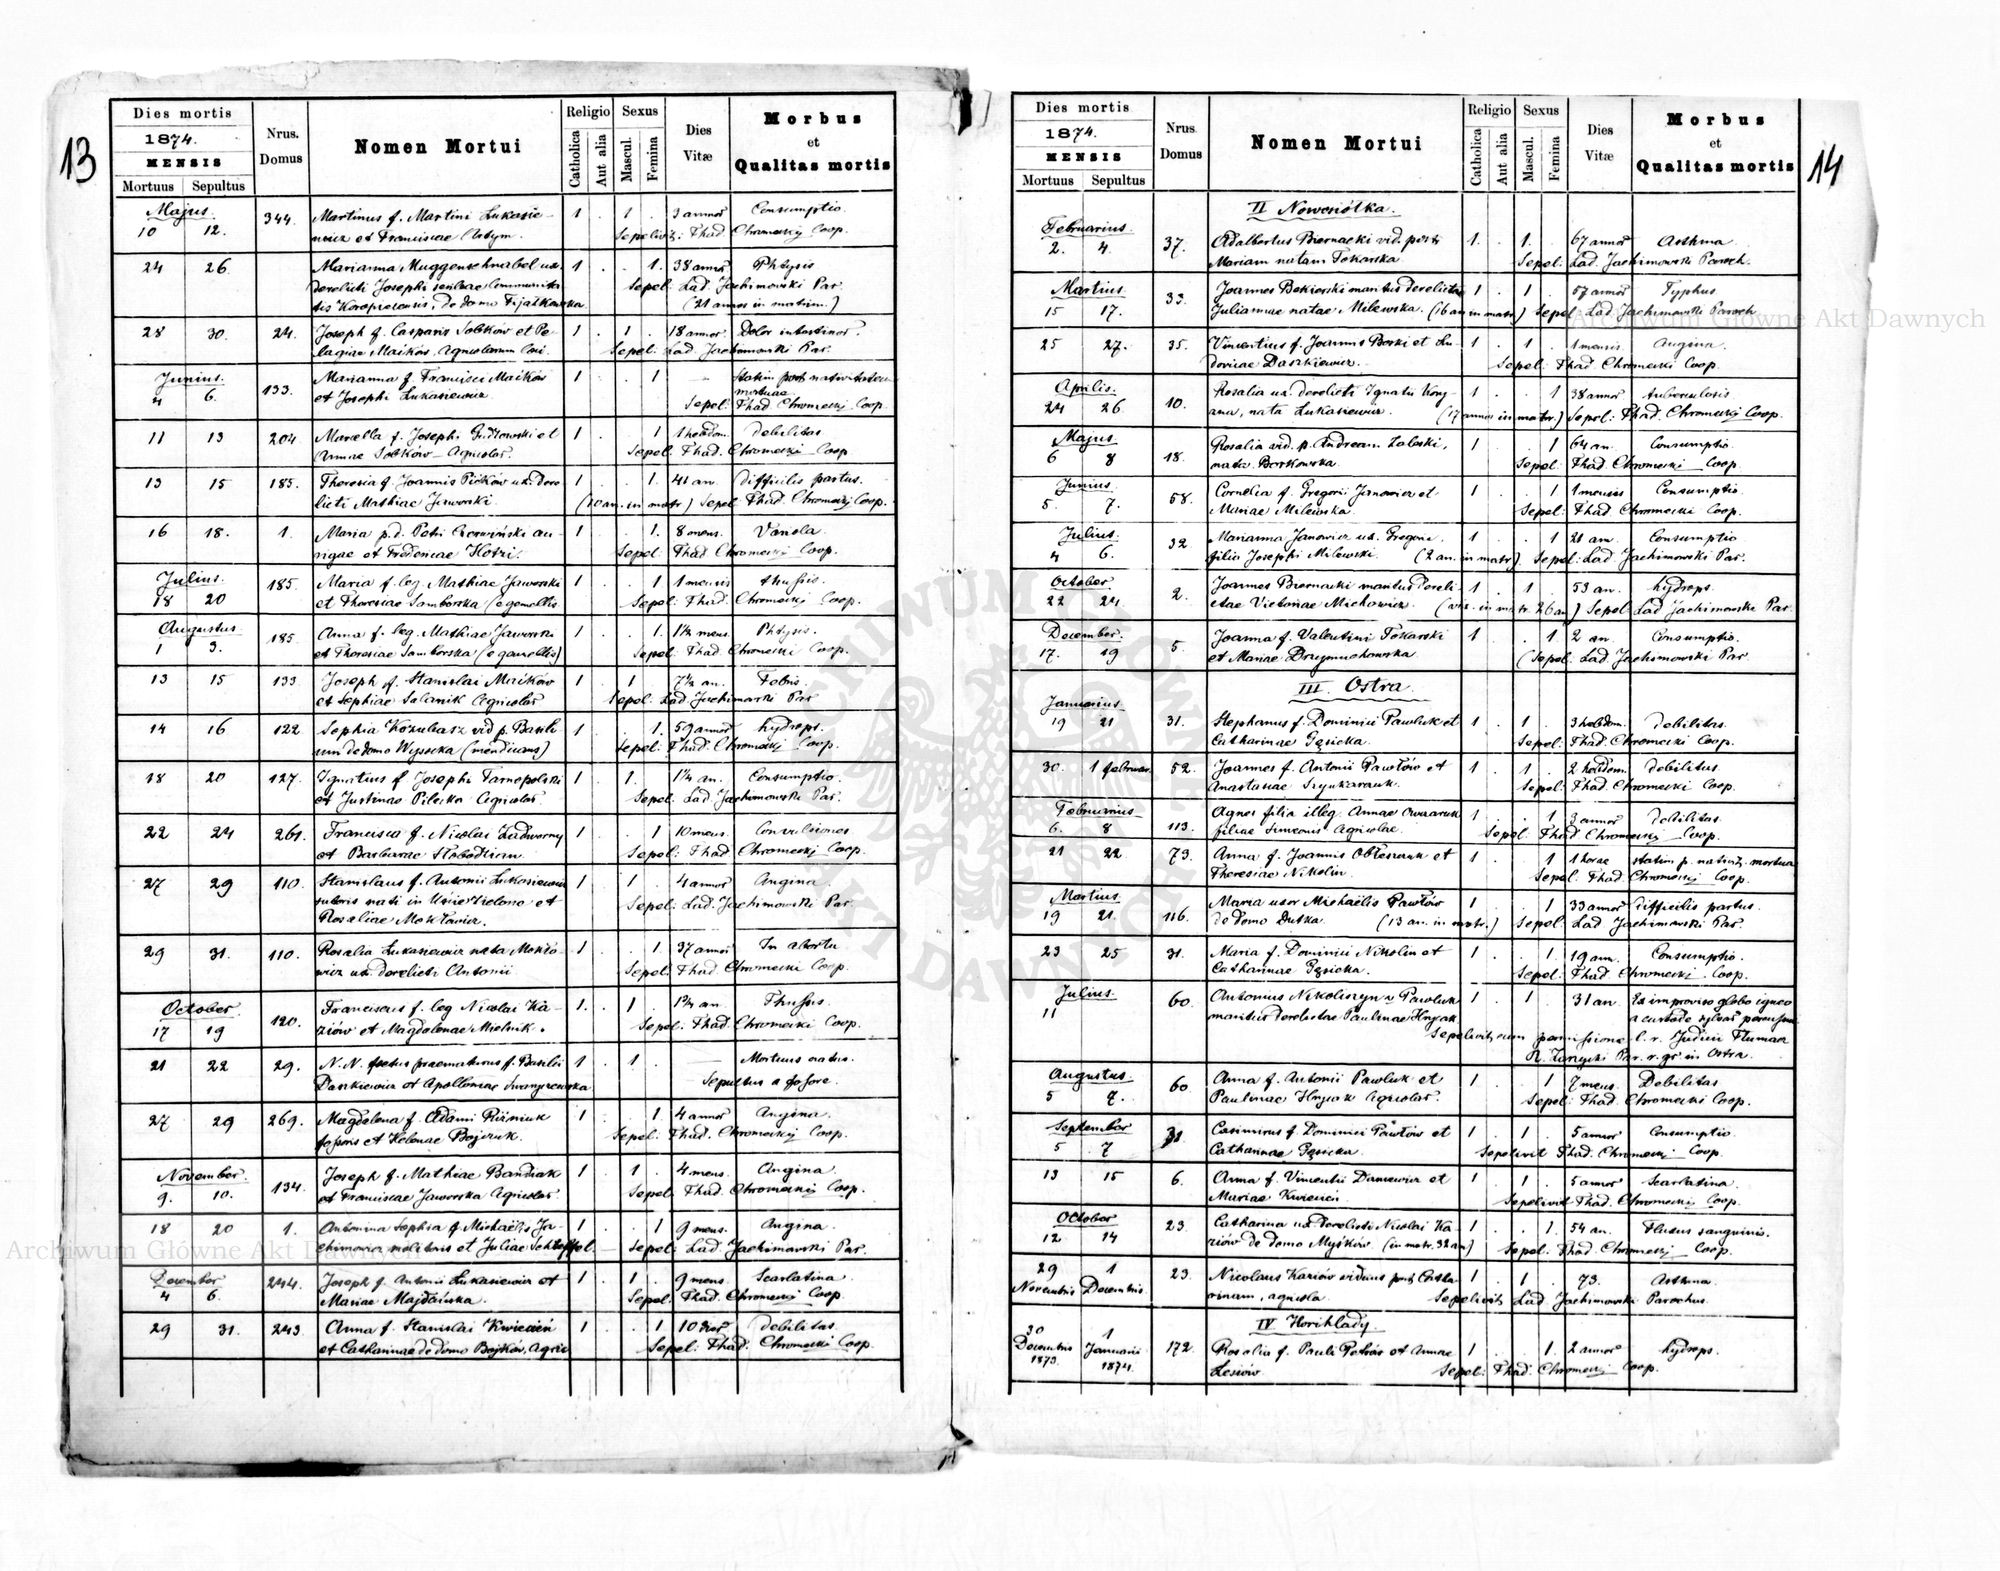 13
Dies mortis
1874.
MENSIS
Mortuus Sepultus
Nrus. Domus
Nomen Mortui
Religio
Catholica
Aut alia
Sexus
Mascul.
Femina
Dies Vitæ
Morbus
et
Qualitas mortis
Majus.
10 12. 344. Martinus f. Martini Łukasie- 1 . 1 . 3 annor Consumptio.
wicz et Franciscae Sepelivit: Thad. Chromecki Coop.
24 26. Marianna Muggenschnabel ux. 1 . . 1. 38 annor Phtysis
derelicti Josephi Sepel: Lad. Jachimowski Par.
de domo Fijałkowska (21 annos in matrim.)
28 30. 24. Joseph f. Casparis Sobków et Pe- 1 . 1 . 18 annor. Dolor intestinor.
lagiae Maików. Agricolarum Sepel: Lad. Jachimowski Par.
Junius.
4 6. 133. Marianna f. Francisci Maików 1 . . 1 — statim post nativitatem
et Josephi Łukasiewicz mortuae
Sepel: Thad Chromecki Coop.
11 13 204. Marcella f. Josephi et 1 . . 1 1 hebdom. Debilitas
Annae Sobków — Agricolar. Sepel: Thad. Chromecki Coop
13 15 185. Theresia f. Joannis ux. dere- 1 . . 1. 41 an. difficilis partus.
licti Mathiae Jaworski (10 an. in matr) Sepel Thad Chromecki Coop.
16 18. 1. Maria p.d. Petri Czerwiński au- 1 . . 1. 8 mens. Variola.
rigae et Fredericae Sepel: Thad Chromecki Coop.
Julius.
18 20 185. Maria f. leg. Mathiae Jaworski 1 . . 1 1 mensis thussis.
et Theresiae Samborska (e gemellis Sepel: Thad. Chromecki Coop.
Augustus
1 3. 185. Anna f. leg. Mathiae Jaworski 1 . . 1. 1½ mens. Phtysis.
et Theresiae Samborska (e gemellis) Sepel: Thad Chromecki Coop.
13 15 133 Joseph f. Stanislai Maików 1 . 1 . 7½ an. Febris.
et Sophiae Salamik Agricolar Sepel: Lad Jachimowski Par
14 16 122 Sophia vid p. Basili- 1 . . 1. 59 annor hydrops.
um de domo Wysocka (mendicans) Sepel: Thad. Chromecki Coop.
18 20 127. Ignatius f Josephi Tarnopolski 1 . 1. . 1½ an. Consumptio.
et Justinae Pilecka Agricolar. Sepel: Lad. Jachimowski Par.
22 24 261. Francisca f. Nicolai Zadworny 1 . . 1 10 mens. Convulsiones
et Barbarae Słobodzian. Sepel: Thad Chromecki Coop.
27 29 110. Stanislaus f. Antonii Łukasiewicz 1 . 1 . 4 annor Angina.
sutoris nati in et Sepel: Lad. Jachimowski Par.
Rosaliae
29 31. 110. Rosalia Łukasiewicz nata 1 . . 1. 37 annor In abortu
wicz ux. derelicti Antonii Sepel: Thad Chromecki Coop.
October
17 19 120. Franciscus f. leg Nicolai Ka- 1. . 1 . 1½ an. Thussis.
ziów et Magdalenae Mielnik. Sepel: Thad Chromecki Coop.
21 22 29. N.N. foetus praematurus f. Basilii 1 . 1 — Mortuus natus.
Daszkiewicz et Apolloniae Sepultus a fossore.
27 29 269. Magdalena f. Adami 1 . . 1. 4 annor Angina.
fossoris et Helenae Bojczuk. Sepel: Thad. Chromecki Coop.
November.
9. 10. 134. Joseph f. Mathiae Bandiak 1 . 1 . 4 mens. Angina.
et Franciscae Jaworska Agricolar Sepel: Thad. Chromecki Coop.
18 20 1. Antonina Sophia f Michaelis Ja- 1 . . 1 9 mens. Angina.
chimowicz militaris et Juliae Sepel: Lad. Jachimowski Par.
December
4 6. 244. Joseph f. Antonii Łukasiewicz et 1 . 1 . 9 mens. Scarlatina.
Mariae Majdańska. Sepel: Thad. Chromecki Coop
29 31. 243. Anna f. Stanislai Kwiecień 1 . . 1 10 dier debilitas.
et Catharinae de domo Bojków, Agric Sepel: Thad. Chromecki Coop.
14
Dies mortis
1874.
MENSIS
Mortuus Sepultus
Nrus. Domus
Nomen Mortui
Religio
Catholica
Aut alia
Sexus
Mascul.
Femina
Dies Vitæ
Morbus
et
Qualitas mortis
II Nowosiółka.
Februarius.
2. 4. 37. Adalbertus Biernacki vid. post 1. . 1. . 67 annor Asthma.
Mariam natam Tokarska. Sepel: Lad. Jachimowski Paroch.
Martius.
15 17. 33. Joannes Bekierski maritus derelictae 1 . 1 . 57 annor Typhus
Juliannae natae Milewska. (16 an in matr) Sepel Lad. Jachimowski Paroch
25 27. 35. Vincentius f. Joannis Borki et Lu- 1 . 1 . 1 mensis angina.
dovicae Daszkiewicz. Sepel: Thad Chromecki Coop.
Aprilis.
24 26 10. Rosalia ux. derelicti Ignatii 1 . . 1 38 annor tuberculosis.
nata Łukasiewicz. (17 annos in matr.) Sepel: Thad. Chromecki Coop.
Majus.
6 8 18. Rosalia vid. p. Andream Zaleski, 1 . . 1 64 an. Consumptio.
nata Bortkowska. Sepel: Thad Chromecki Coop.
Junius
5. 7. 58. Cornelia f. Gregorii Janowicz et 1 . . 1 1 mensis Consumptio.
Mariae Milewska. Sepel: Thad. Chromecki Coop.
Julius.
4 6. 32. Marianna Janowicz ux. Gregorii 1 . . 1 21 an. Consumptio
filia Josephi Milewski. (2 an. in matr). Sepel: Lad. Jachimowski Par.
October
22 24. 2. Joannes Biernacki maritus dereli- 1 . 1 . 53 an. hydrops.
ctae Victoriae Michowicz. (in matr. 26 an.) Sepel: Lad Jachimowski Par.
December.
17. 19 5. Joanna f. Valentini Tokarski 1 . . 1 2 an. Consumptio.
et Mariae Sepel: Lad. Jachimowski Par
III. Ostra.
Januarius.
19 21 31. Stephanus f. Dominici Pawluk et 1 . 1 . 3 hebdom. debilitas.
Catharinae Gęsicka. Sepel: Thad. Chromecki Coop.
30. 1 februar. 52. Joannes f. Antonii Pawłów et 1 . 1 . 2 hebdom. debilitas
Anastasiae Sepel: Thad. Chromecki Coop.
Februarius
6. 8 113. Agnes filia illeg. Annae 1 . . 1 3 annor debilitas.
filiae Simeonis Agricolae. Sepel: Thad Chromecki Coop.
21 22 73. Anna f. Joannis et 1 . . 1 1 horae statim p. nativit. mortua
Theresiae Nikolin. Sepel: Thad. Chromecki Coop.
Martius
19 21. 116. Maria uxor Michaëlis Pawłów 1 . . 1 33 annor difficilis partus.
de domo Dutka. (13 an. in matr.) Sepel: Lad Jachimowski Par.
23 25 31. Maria f. Dominici Nikolin et 1 . . 1. 19 an. Consumptio.
Catharinae Gęsicka. Sepel: Thad. Chromecki Coop.
Julius.
11 60. Antonius Pawluk 1 . 1 . 31 an. Ex improviso globo igneo
maritus derelictae Paulinae a custode
Sepelivit cum permissione c. r. Judicii
Par. r. gr. in Ostra.
Augustus
5 7. 60. Anna f. Antonii Pawluk et 1 . . 1 7 mens. Debilitas
Paulinae Agricolar. Sepel: Thad. Chromecki Coop.
September
5 7 31 Casimirus f. Dominici Pawłów et 1 . 1 . 5 annor Consumptio
Catharinae Gęsicka. Sepelivit Thad. Chromecki Coop.
13 15 6. Anna f. Vincentii et 1 . . 1 5 annor Scarlatina.
Mariae Kwiecień. Sepelivit Thad. Chromecki Coop.
October
12 14 23. Catharina ux. derelicti Nicolai Ka- 1 . . 1. 54 an. Fluxus sanguinis.
ziów de domo Myśków. (in matr. 32 an) Sepel: Thad. Chromecki Coop.
29 1
Novembris Decembris. 23. Nicolaus Kaziów viduus post Catha- 1 . 1 . 73. Asthma.
rinam, agricola. Sepelivit Lad Jachimowski Parochus.
IV Horihlady.
30 1
Decembris Januarii 172. Rosalia f. Pauli Petrów et Annae 1 . . 1. 2 annor hydrops.
1873. 1874. Lesiów. Sepel: Thad: Chromecki Coop.
Archiwum Główne Akt Dawnych
Archiwum Główne Akt Dawnych
ARCHIWUM GŁÓWNE AKT DAWNYCH